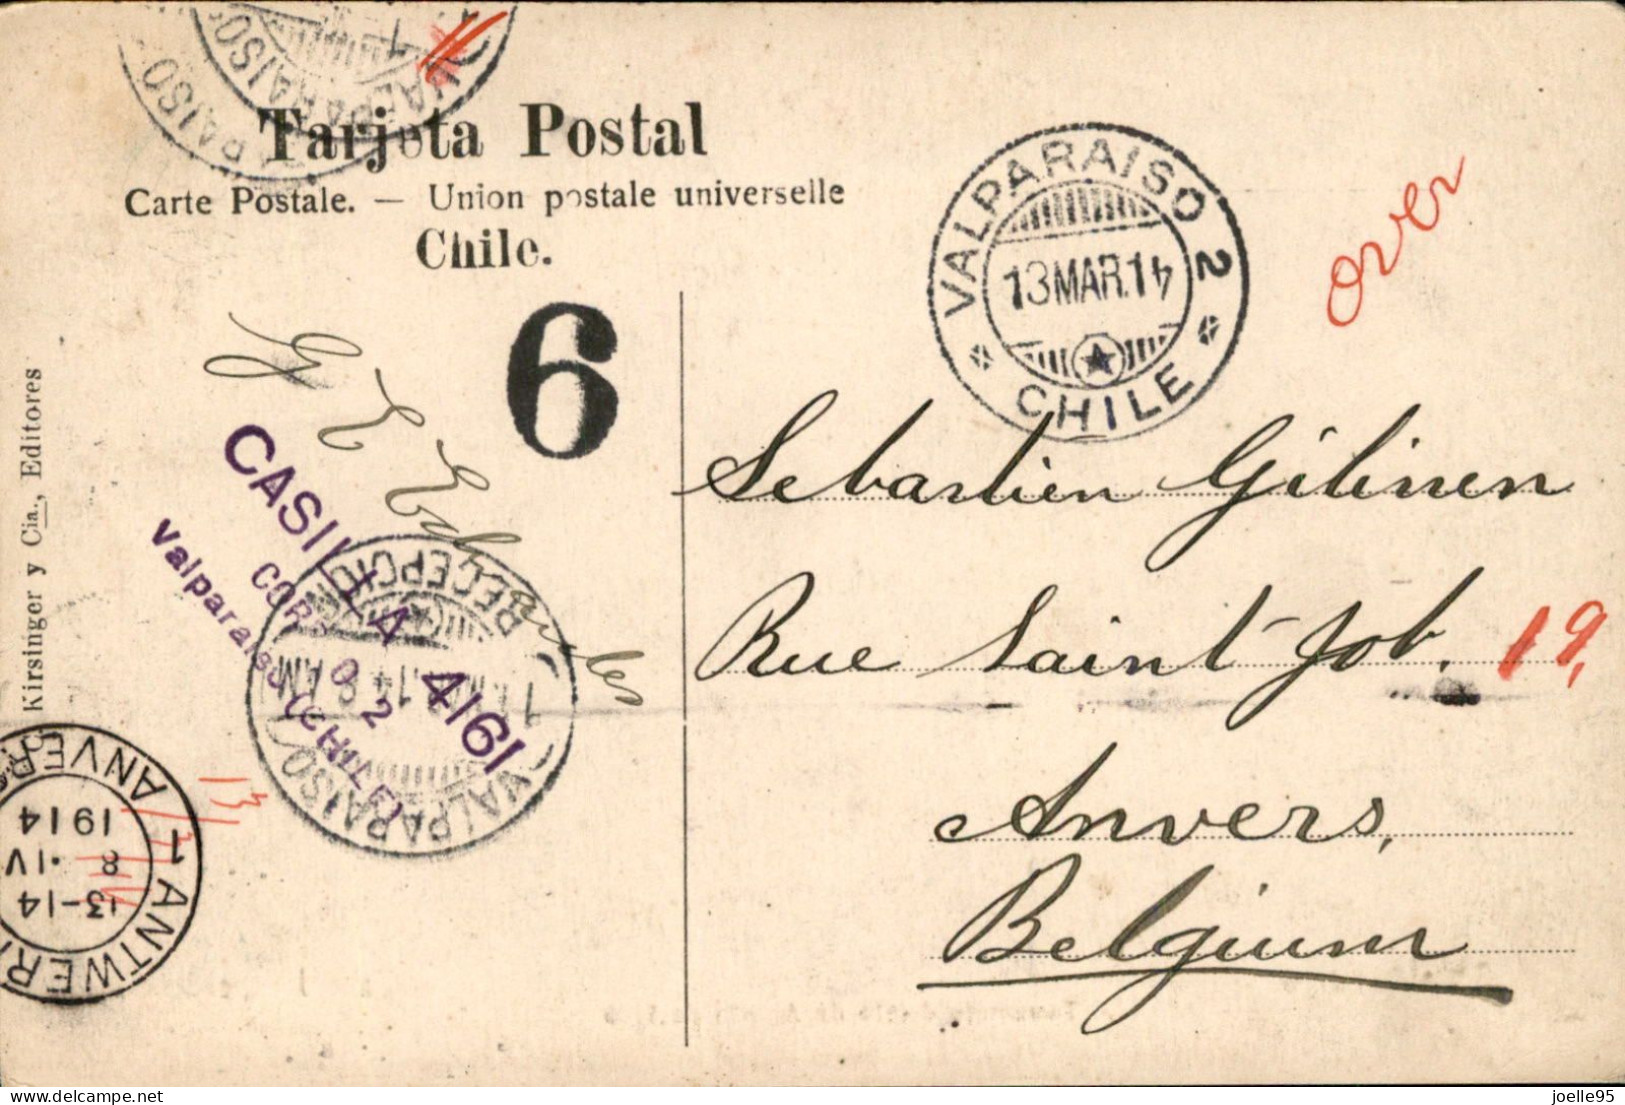 Tarjeta Postal
Carte Postale. — Union postale universelle
Chile.
VALPARAISO
VALPARAISO
6
VALPARAISO 2
13 MAR. 14
CHILE
over
Kirsinger y Cia., Editores
CASILLA 4161
CORREO 2
Valparaiso (CHILE)
RECEPCION
VALPARAISO
Sebastien Gilissen
Rue Saint Job. 19,
Anvers,
Belgium
1 ANTWERP
ANVERS
13-14
8 • IV
1914
joelle95